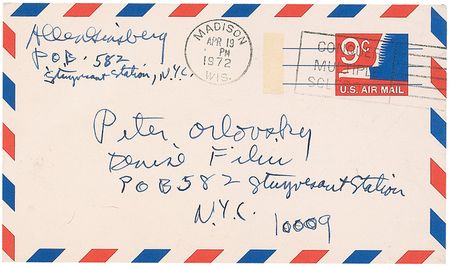 Allen Ginsberg
P O B · 582
Stuyvesant Station, N.Y.C.
MADISON
APR 19
PM
1972
WIS.
9c
U.S. AIR MAIL
Peter Orlovsky
Denise
P O B 582 Stuyvesant Station
N.Y.C. 10009